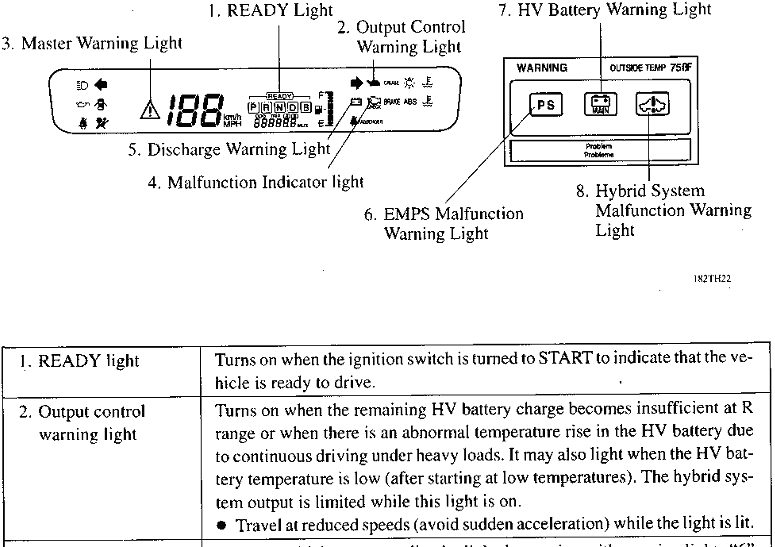 1. READY Light
7. HV Battery Warning Light
2. Output Control
Warning Light
3. Master Warning Light
WARNING OUTSIDE TEMP 75°F
READY
P R N D B
188
km/h
MPH
888888
F
E
BRAKE ABS
PS
MAIN
Problem
Problème
5. Discharge Warning Light
4. Malfunction Indicator light
6. EMPS Malfunction
Warning Light
8. Hybrid System
Malfunction Warning
Light
182TH22
1. READY light
Turns on when the ignition switch is turned to START to indicate that the ve-
hicle is ready to drive.
2. Output control
warning light
Turns on when the remaining HV battery charge becomes insufficient at R
range or when there is an abnormal temperature rise in the HV battery due
to continuous driving under heavy loads. It may also light when the HV bat-
tery temperature is low (after starting at low temperatures). The hybrid sys-
tem output is limited while this light is on.
● Travel at reduced speeds (avoid sudden acceleration) while the light is lit.